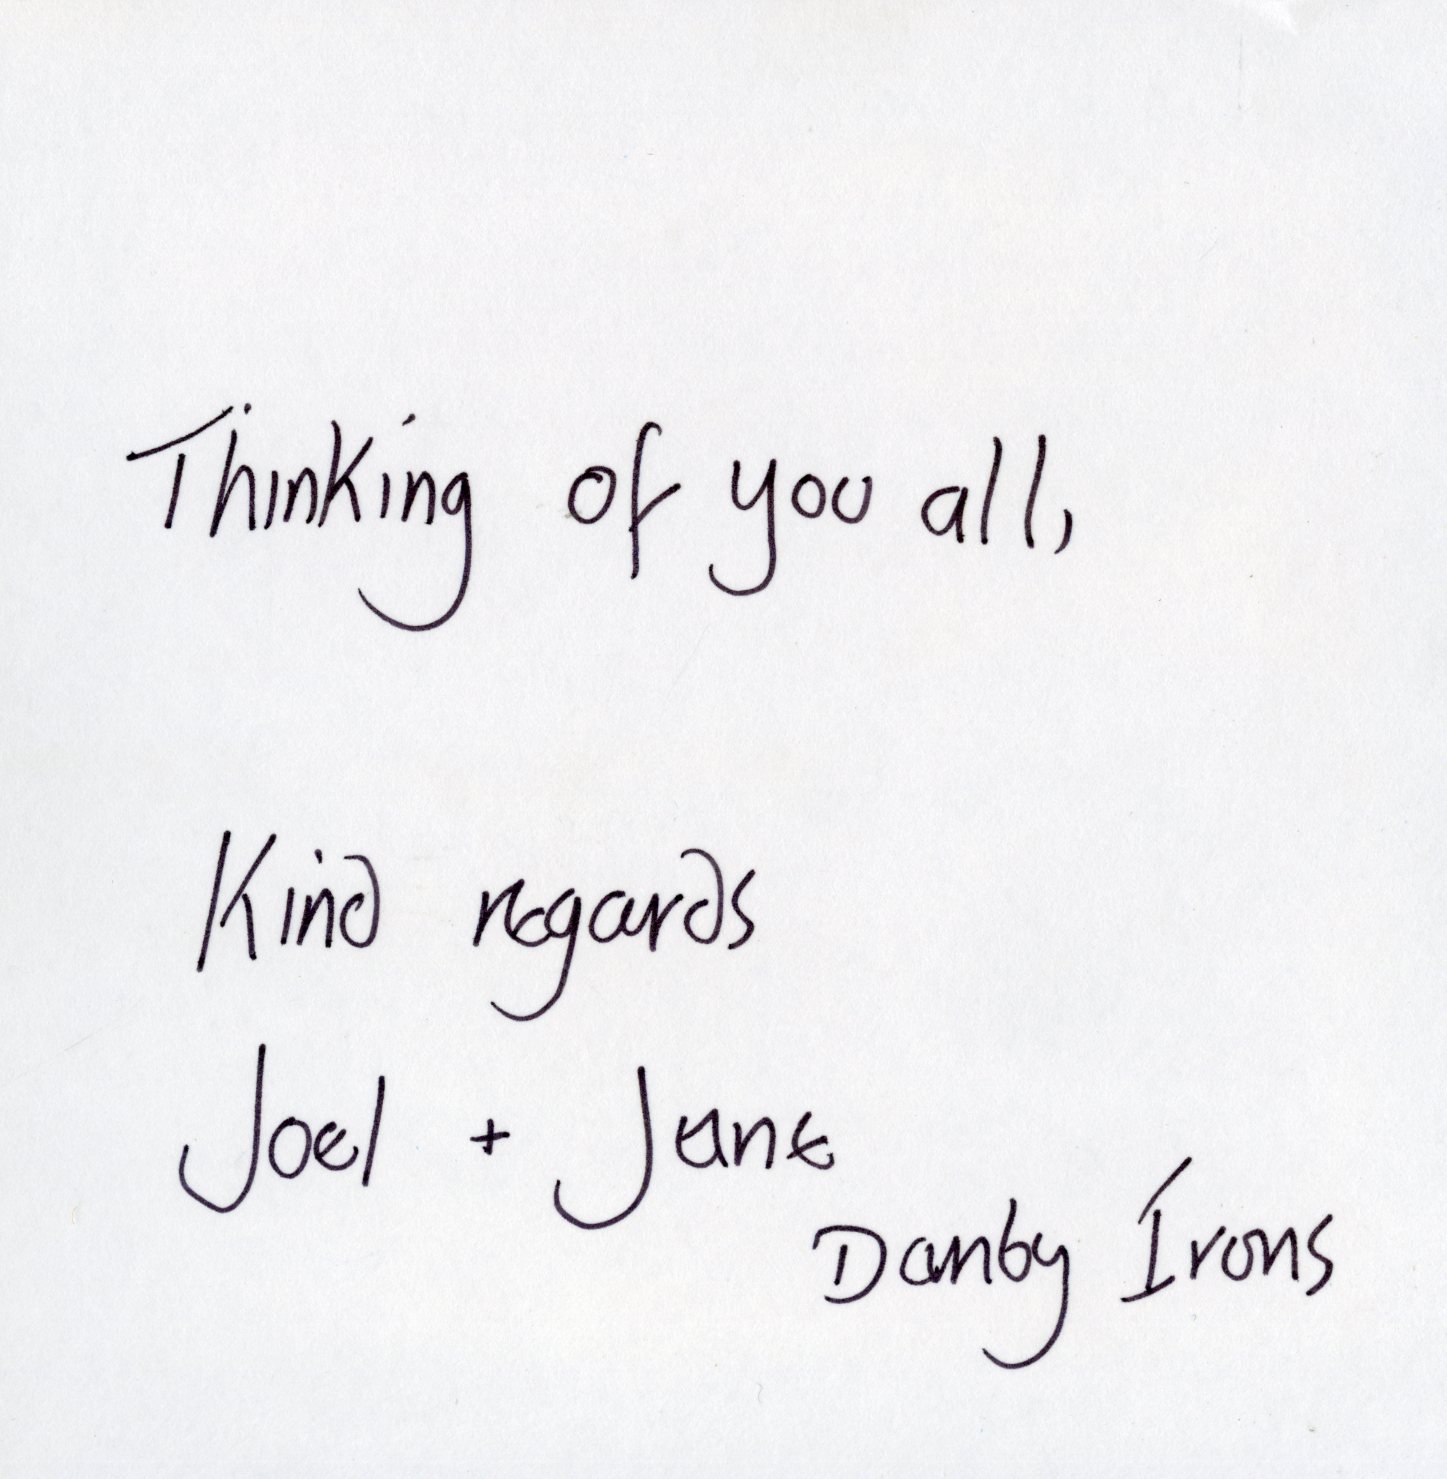 Thinking of you all,
Kind regards
Joel + June
Danby Irons